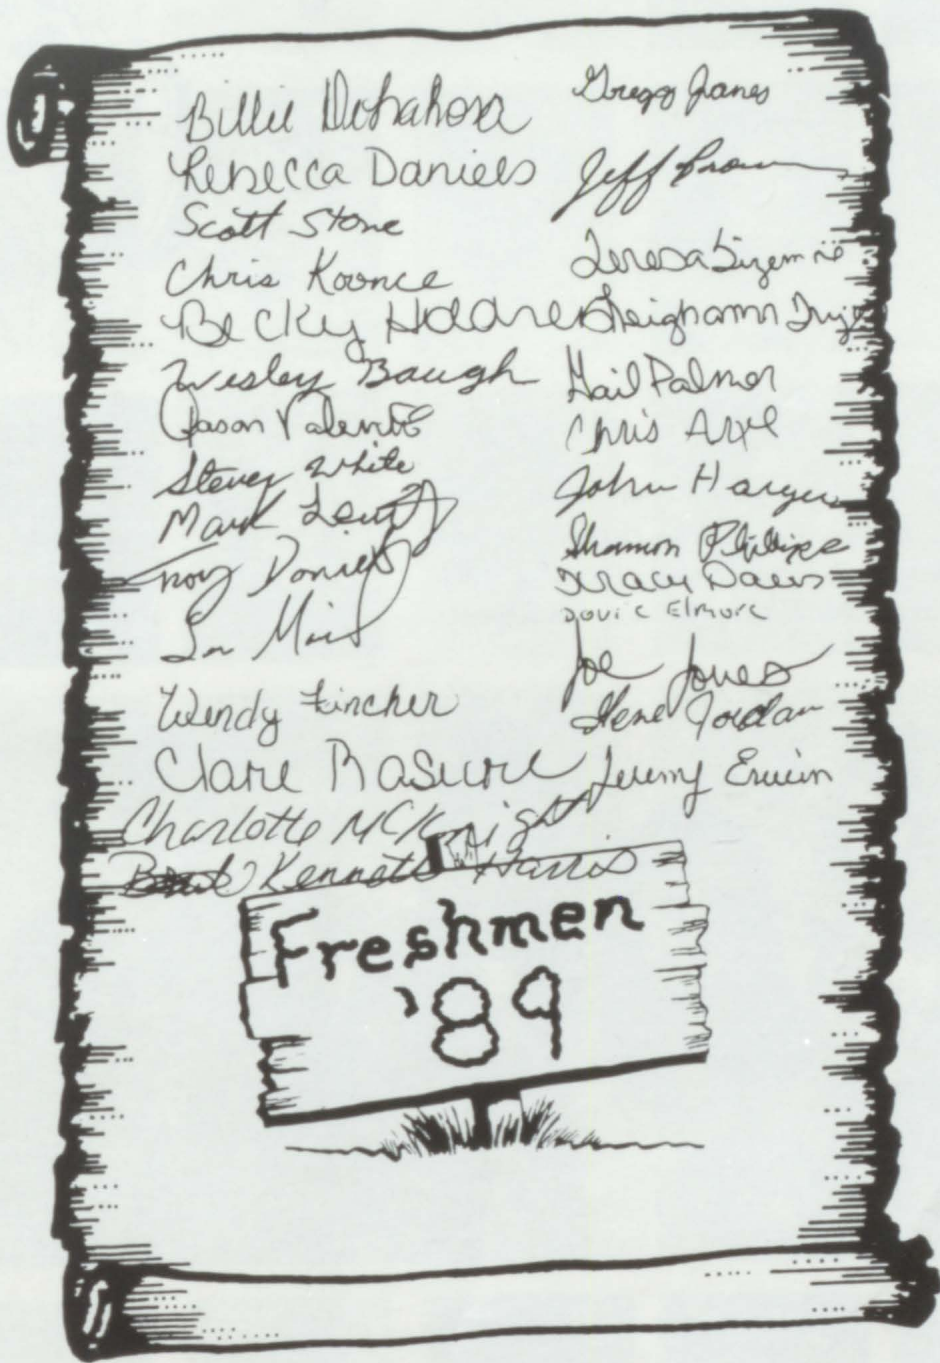 Billie
Rebecca Daniels
Scott Stone
Chris Koonce
Becky
Wesley Baugh
Jason Valente
Steven White
Mark
Troy Daniels
Wendy Fincher
Clare Rasure
Charlotte McKnight
Kenneth Harris
Gregg Janes
Jeff Brown
Teresa Sizemore
Leighann
Gail Palmer
Chris
John
Shannon Phillips
Tracy Davis
Elmore
Joe Jones
Jordan
Jeremy Erwin
Freshmen
'89